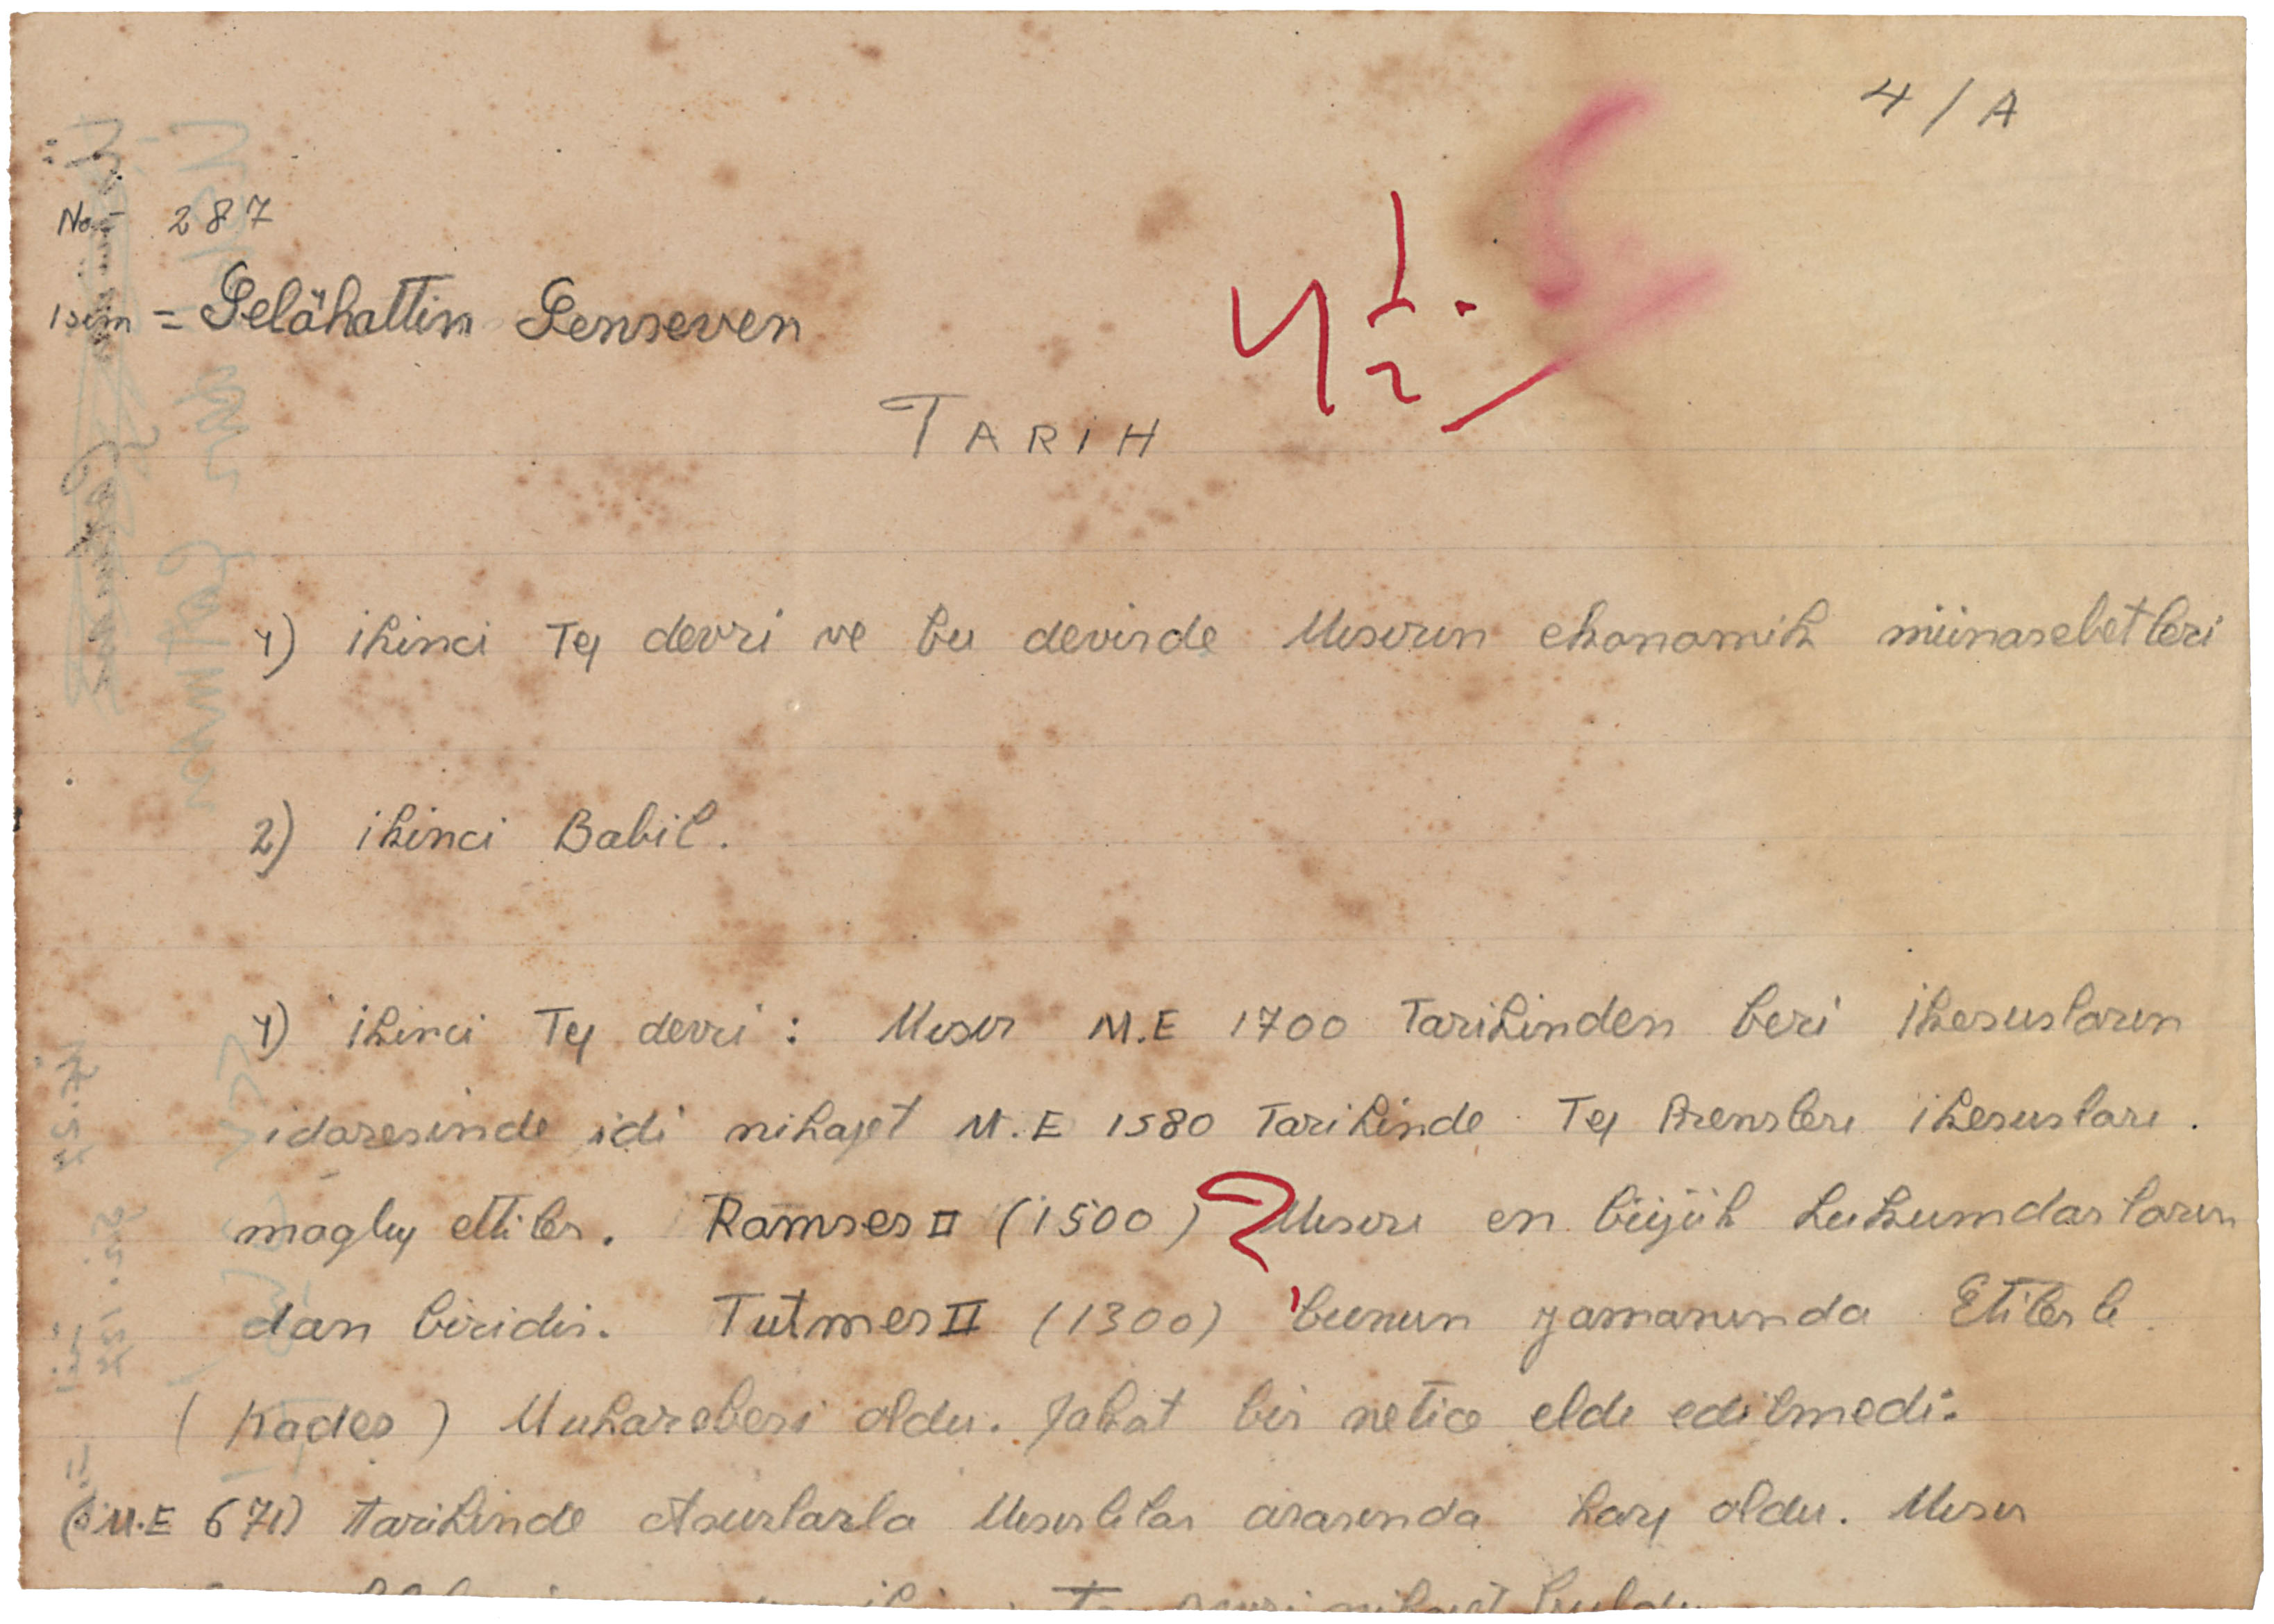 4 / A
No= 287
isim = Selâhattin Senseven
4 1/2.
TARİH
1) ikinci Tep devri ve bu devirde Mısırın ekonomik münasebetleri
2) ikinci Babil.
1) ikinci Tep devri : Mısır M.E 1700 Tarihinden beri ikesusların
idaresinde idi nihayet M.E 1580 Tarihinde Tep Prensleri ikesusları.
maglup ettiler. Ramses II (1500) ? Mısırı en büyük hukumdarların
dan biridir. Tutmes II (1300) bunun zamanında Etilerle
( Kades ) Muharebesi oldu. fakat bir netice elde edilmedi.
(M.E 671) tarihinde Asurlarla Mısırlılar arasında harp oldu. Mısır